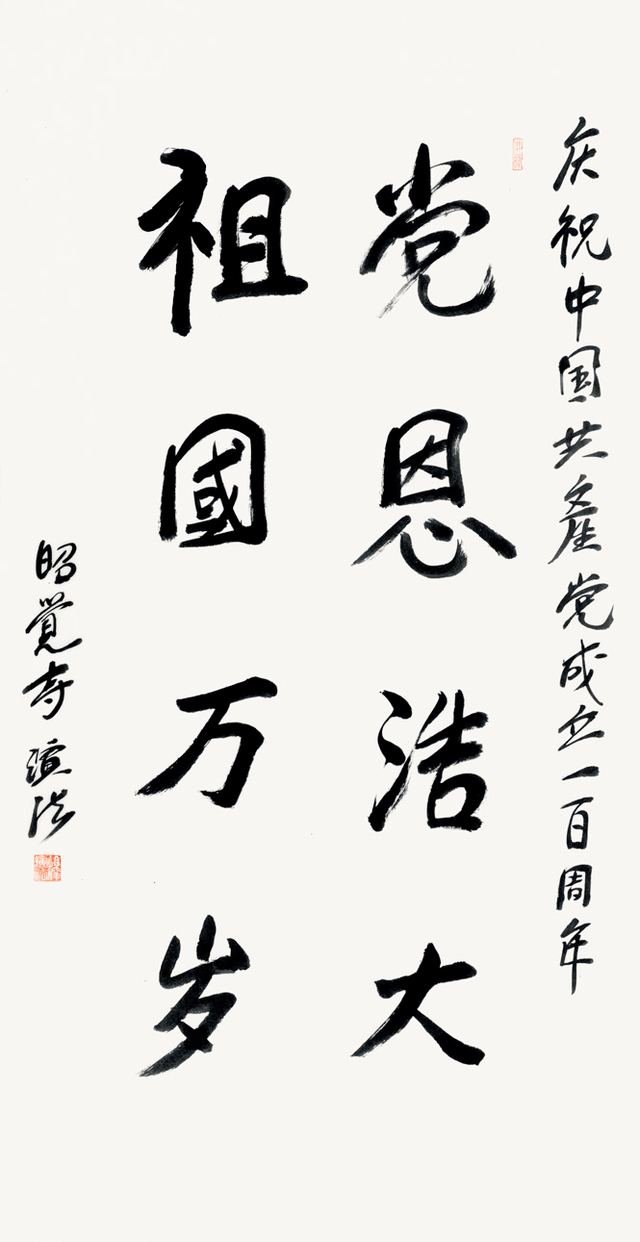 庆祝中国共產党成立一百周年
党恩浩大
祖國万岁
昭觉寺 演法